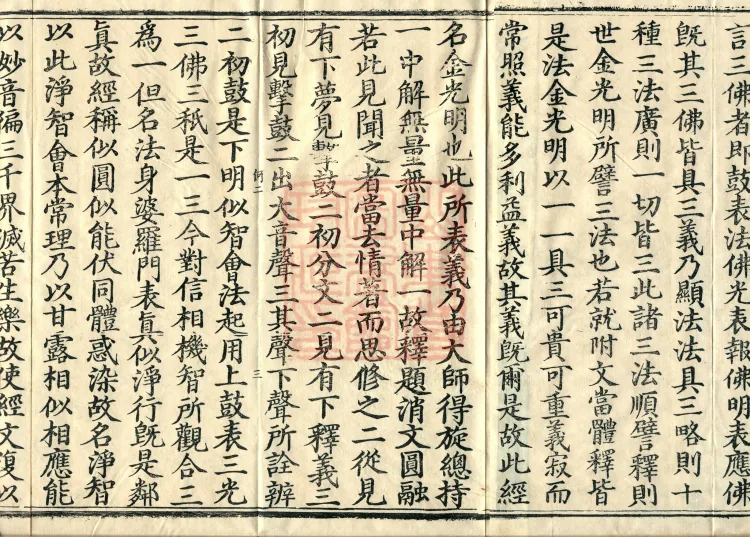 言三佛者即鼓表法佛光表報佛明表應佛
旣其三佛皆具三義乃顯法法具三略則十
種三法廣則一切皆三此諸三法順譬釋則
世金光明所譬三法也若就附文當體釋皆
是法金光明以一一具三可貴可重義寂而
常照義能多利益義故其義旣爾是故此經
名金光明也此所表義乃由大師得旋總持
一中解無量無量中解一故釋題消文圓融
若此見聞之者當去情著而思修之二從見
有下夢見擊鼓二初分文二見有下釋義三
初見擊鼓二出大音聲三其聲下聲所詮辨
二初鼓是下明似智會法起用上鼓表三光
三佛三秖是一三今對信相機智所觀合三
為一但名法身婆羅門表眞似淨行旣是鄰
眞故經稱似圓似能伏同體惑染故名淨智
以此淨智會本常理乃以甘露相似相應能
以妙音徧三千界滅苦生樂故使經文復以